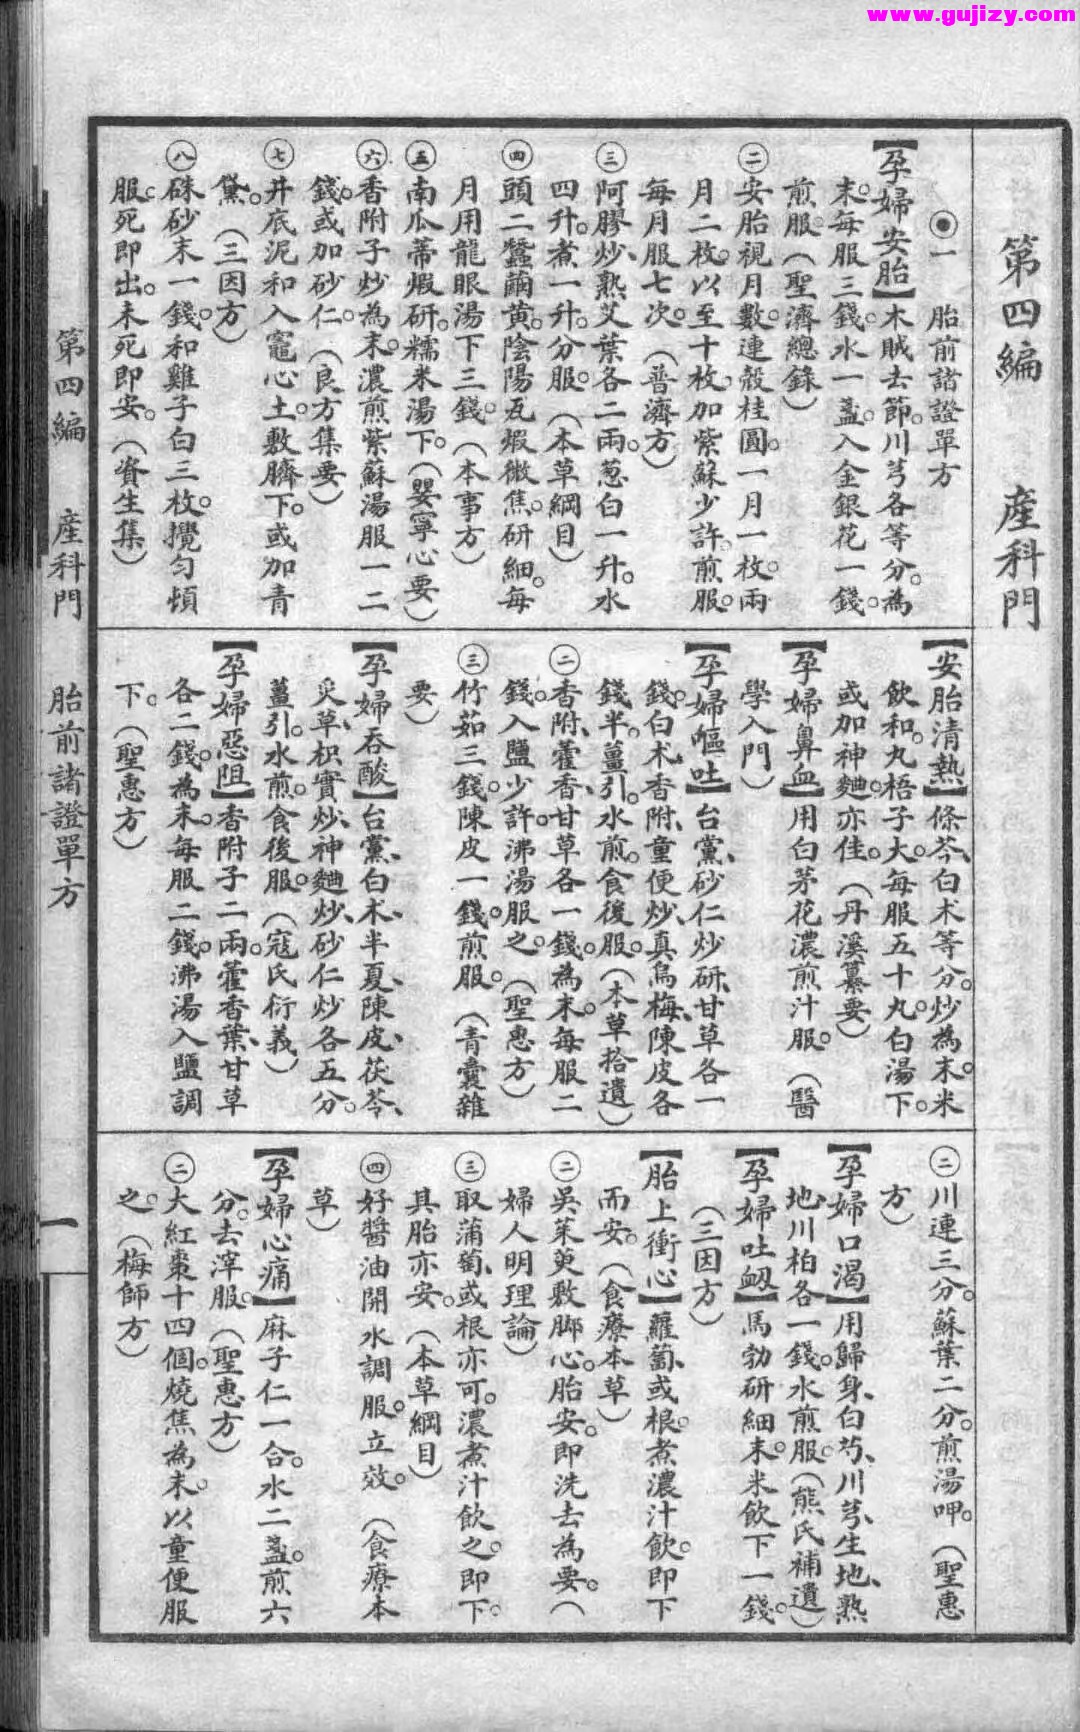 www.gujizy.com
第四編　産科門
◉一　胎前諸證單方
【孕婦安胎】木賊去節。川芎各等分。為
末。每服三錢。水一盞。入金銀花一錢。
煎服。（聖濟總錄）
㊁安胎視月數。連殼桂圓。一月一枚。兩
月二枚。以至十枚。加紫蘇少許。煎服。
每月服七次。（普濟方）
㊂阿膠炒、熟艾葉各二兩。葱白一升。水
四升。煮一升。分服。（本草綱目）
㊃頭二蠶繭黃。陰陽瓦煅微焦。研細。每
月用龍眼湯下三錢。（本事方）
㊄南瓜蒂煅研。糯米湯下。（嬰寧心要）
㊅香附子炒為末。濃煎紫蘇湯服一二
錢。或加砂仁。（良方集要）
㊆井底泥和入竈心土。敷臍下。或加青
黛。（三因方）
㊇硃砂末一錢。和雞子白三枚。攪勻頓
服。死即出。未死即安。（資生集）
【安胎清熱】條芩、白术等分。炒為末。米
飲和。丸梧子大。每服五十丸。白湯下。
或加神麯亦佳。（丹溪纂要）
【孕婦鼻血】用白茅花濃煎汁服。（醫
學入門）
【孕婦嘔吐】台黨、砂仁炒研、甘草各一
錢。白术、香附、童便炒、真烏梅、陳皮各
錢半。薑引。水煎。食後服。（本草拾遺）
㊁香附、藿香、甘草各一錢。為末。每服二
錢。入鹽少許。沸湯服之。（聖惠方）
㊂竹茹三錢。陳皮一錢。煎服。（青囊雜
要）
【孕婦吞酸】台黨、白术、半夏、陳皮、茯苓、
炙草、枳實炒、神麯炒、砂仁炒各五分。
薑引。水煎。食後服。（寇氏衍義）
【孕婦惡阻】香附子二兩。藿香葉、甘草
各二錢。為末。每服二錢。沸湯入鹽調
下。（聖惠方）
㊁川連三分。蘇葉二分。煎湯呷。（聖惠
方）
【孕婦口渴】用歸身、白芍、川芎、生地、熟
地、川柏各一錢。水煎服。（熊氏補遺）
【孕婦吐衂】馬勃研細末。米飲下一錢。
（三因方）
【胎上衝心】蘿蔔或根。煮濃汁飲。即下
而安。（食療本草）
㊁吳茱萸敷脚心。胎安。即洗去為要。（
婦人明理論）
㊂取蒲萄。或根亦可。濃煮汁飲之。即下。
其胎亦安。（本草綱目）
㊃好醬油開水調服。立效。（食療本
草）
【孕婦心痛】麻子仁一合。水二盞。煎六
分。去滓服。（聖惠方）
㊁大紅棗十四個。燒焦為末。以童便服
之。（梅師方）
第四編　産科門　胎前諸證單方　一